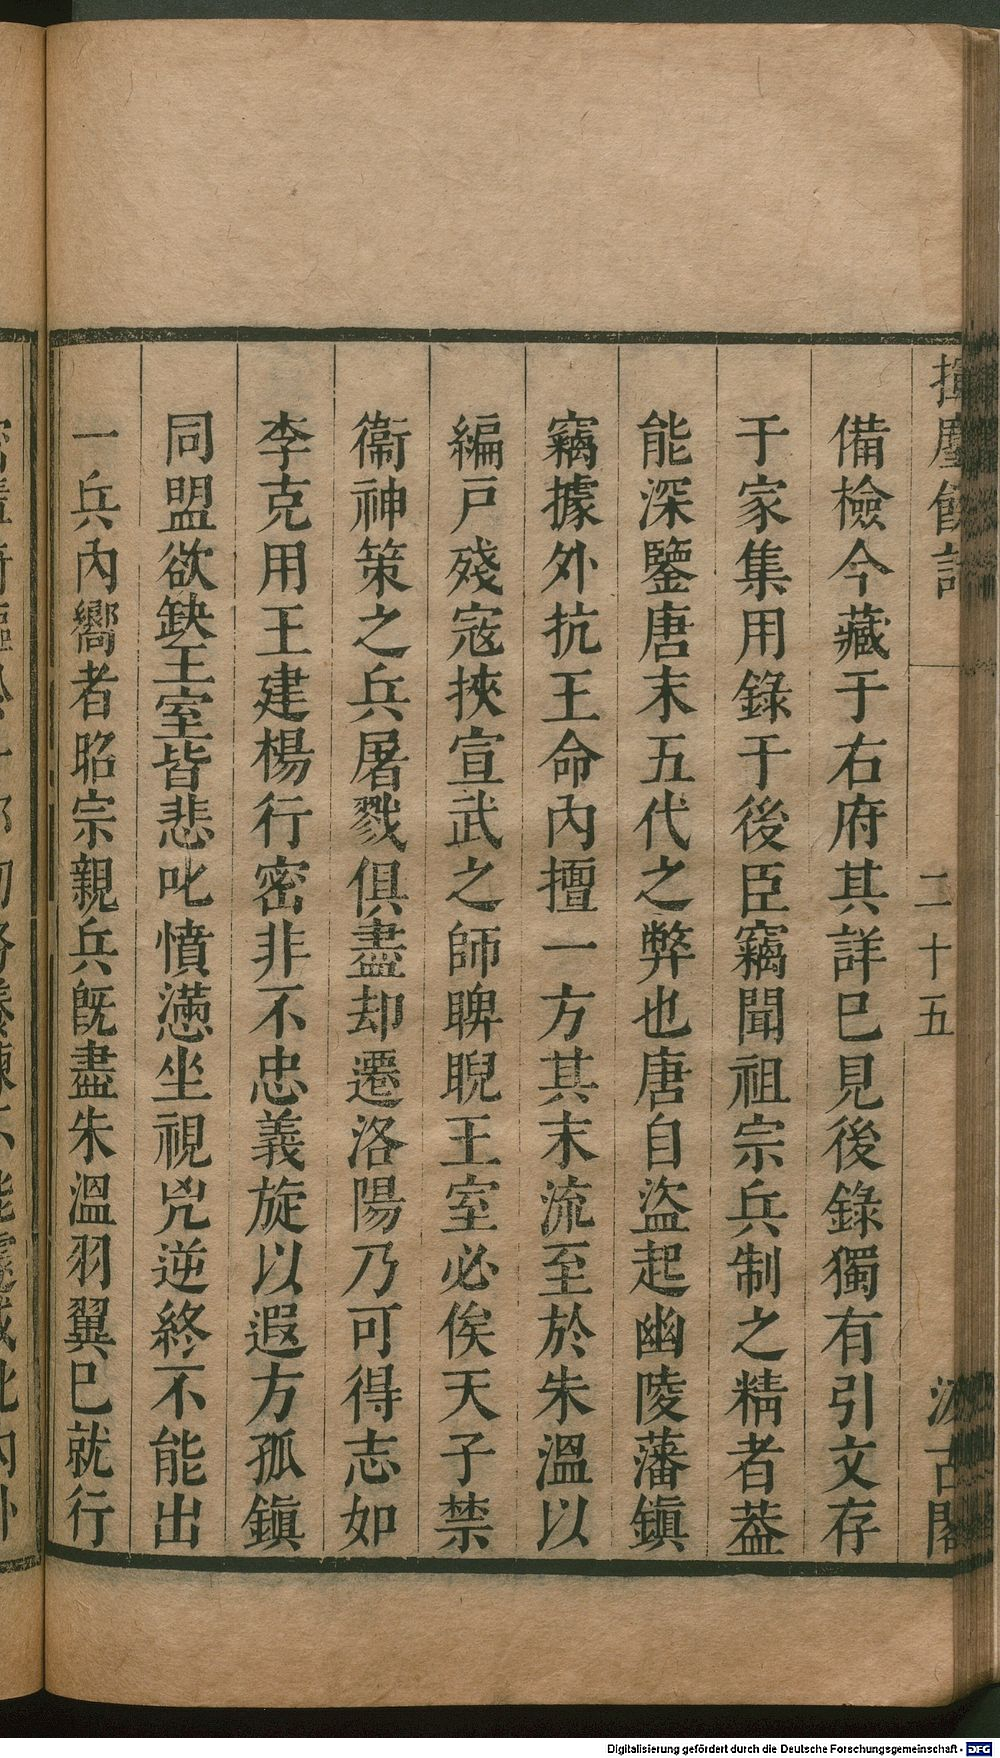 揮麈餘話
二十五
汲古閣
備檢今藏于右府其詳巳見後錄獨有引文存
于家集用錄于後臣竊聞祖宗兵制之精者葢
能深鑒唐末五代之弊也唐自盜起幽陵藩鎮
竊據外抗王命內擅一方其末流至於朱溫以
編戸殘寇挾宣武之師睥睨王室必俟天子禁
衞神策之兵屠戮俱盡却遷洛陽乃可得志如
李克用王建楊行密非不忠義旋以遐方孤鎮
同盟欲缺王室皆悲叱憤懣坐視兇逆終不能出
一兵內嚮者昭宗親兵旣盡朱溫羽翼巳就行
Digitalisierung gefördert durch die Deutsche Forschungsgemeinschaft - DFG